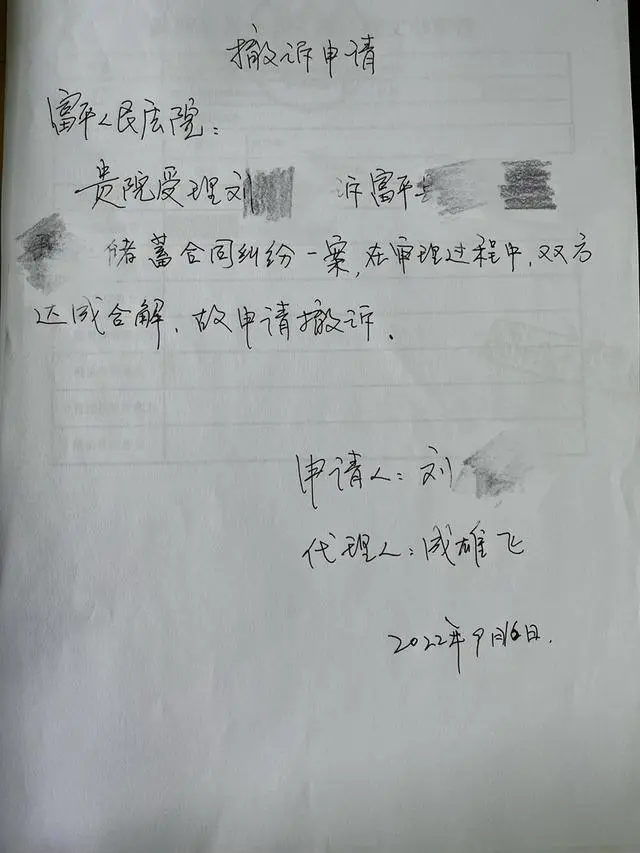 撤诉申请
富平人民法院：
贵院受理刘 诉富平县
储蓄合同纠纷一案，在审理过程中，双方
达成合解，故申请撤诉。
申请人：刘
代理人：成雄飞
2022年9月16日.